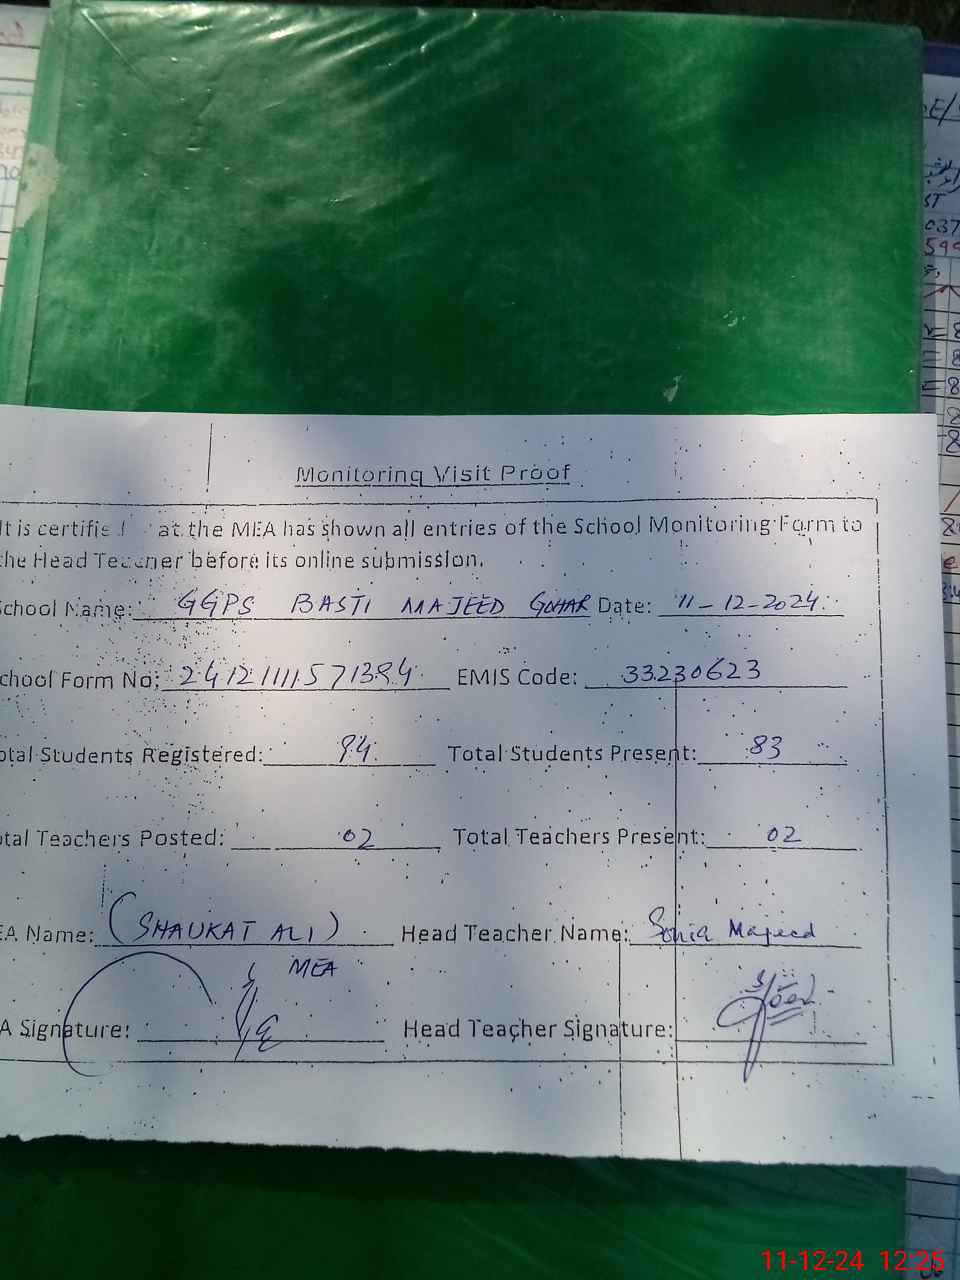 Monitoring Visit Proof
It is certifie at the MEA has shown all entries of the School Monitoring Form to
the Head Teacher before its online submission.
School Name: GGPS BASTI MAJEED GOHAR Date: 11-12-2024
School Form No: 2412111571394 EMIS Code: 33230623
otal Students Registered: 94 Total Students Present: 83
otal Teachers Posted: 02 Total Teachers Present: 02
EA Name: (SHAUKAT ALI) Head Teacher Name: Sonia Majeed
MEA
A Signature: Head Teacher Signature:
11-12-24 12:25